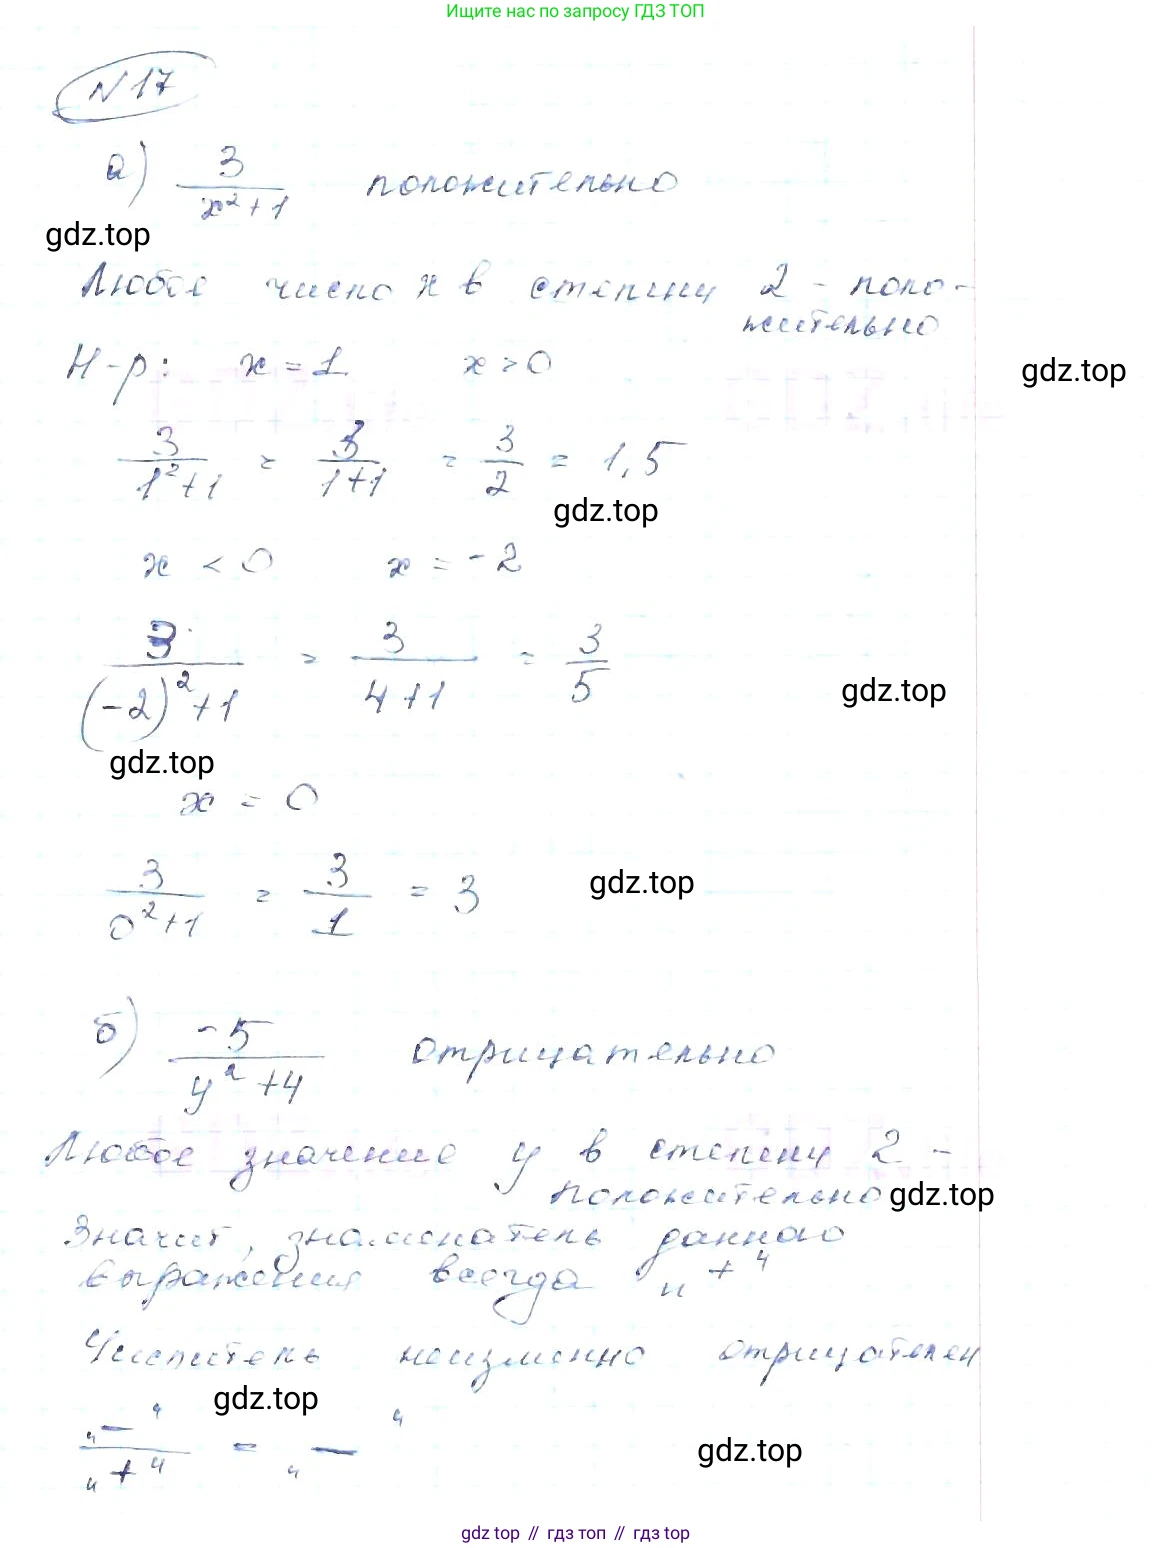 Ищите нас по запросу ГДЗ ТОП
N 17
а) 3/(x²+1) положительно
gdz.top
Любое число x в степени 2 - поло-
жительно
Н-р: x = 1 x > 0
gdz.top
3/(1²+1) = 3/(1+1) = 3/2 = 1,5
gdz.top
x < 0 x = -2
3/((-2)²+1) = 3/(4+1) = 3/5
gdz.top
gdz.top
x = 0
3/(0²+1) = 3/1 = 3
gdz.top
б) -5/(y²+4) отрицательно
Любое значение y в степени 2 -
положительно
gdz.top
Значит, знаменатель данного
выражения всегда "+"
Числитель неизменно отрицателен
gdz.top
"-"/"+" = "-"
gdz.top
gdz top // гдз топ // гдз top